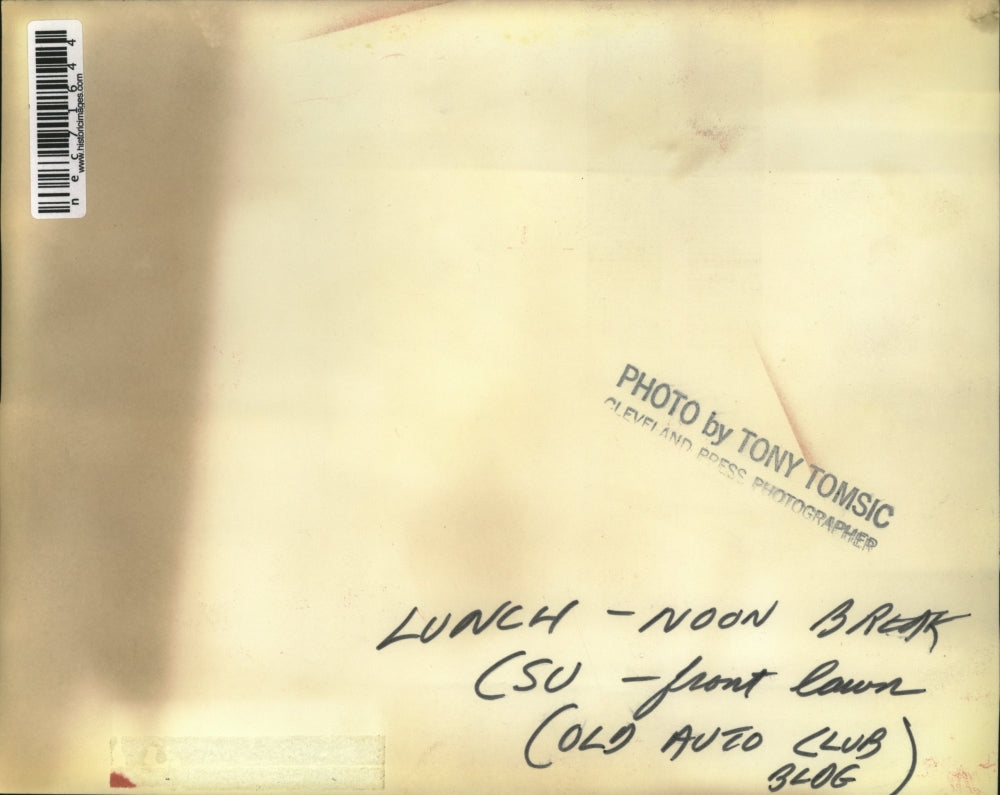 nec71644
www.historicimages.com
PHOTO by TONY TOMSIC
CLEVELAND PRESS PHOTOGRAPHER
LUNCH - NOON BREAK
CSU - front lawn
(OLD AUTO CLUB
BLDG)